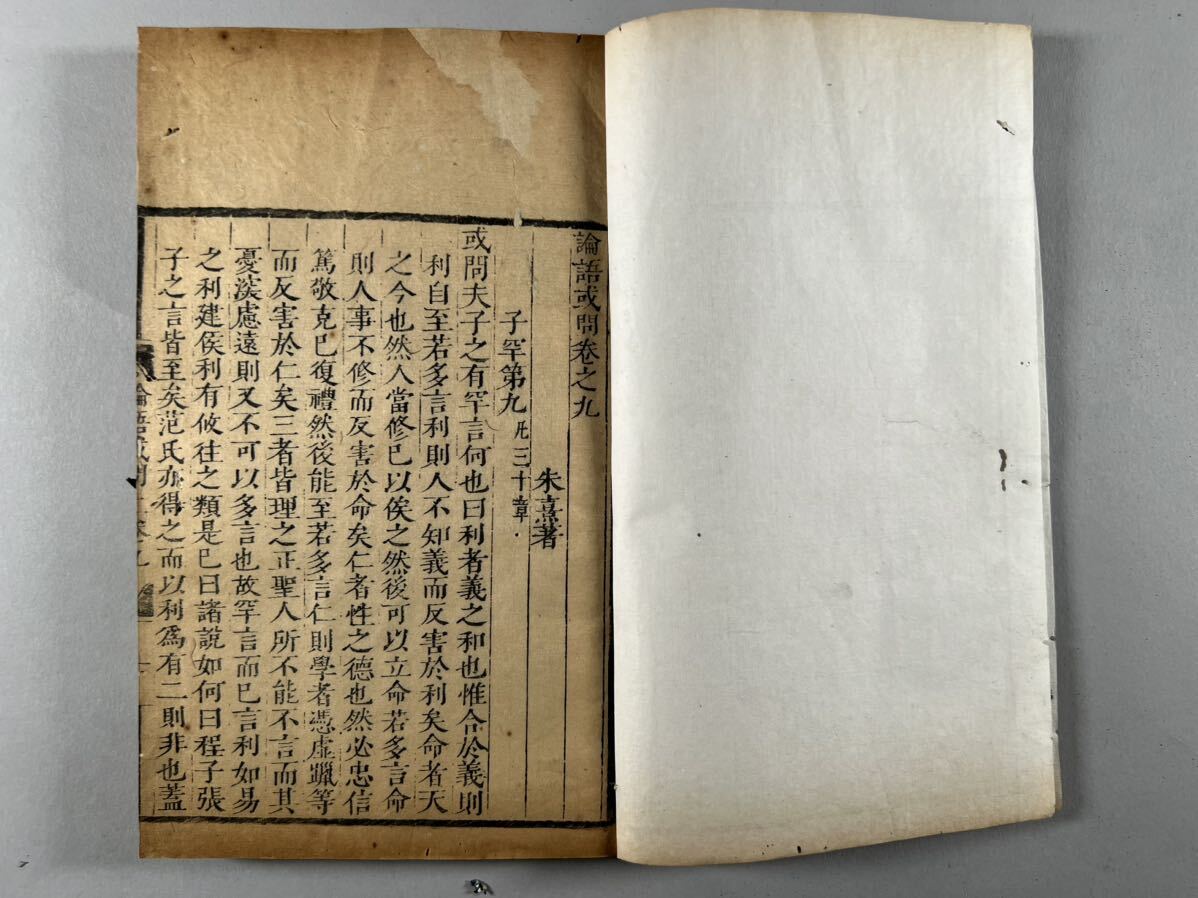 論語或問卷之九
朱熹著
子罕第九凡三十章
或問夫子之有罕言何也曰利者義之和也惟合於義則
利自至若多言利則人不知義而反害於利矣命者天
之令也然人當修已以俟之然後可以立命若多言命
則人事不修而反害於命矣仁者性之德也然必忠信
篤敬克已復禮然後能至若多言仁則學者憑虛躐等
而反害於仁矣三者皆理之正聖人所不能不言而其
憂深慮遠則又不可以多言也故罕言而已言利如易
之利建侯利有攸往之類是已曰諸說如何曰程子張
子之言皆至矣范氏亦得之而以利爲有二則非也蓋
論語或問 卷九